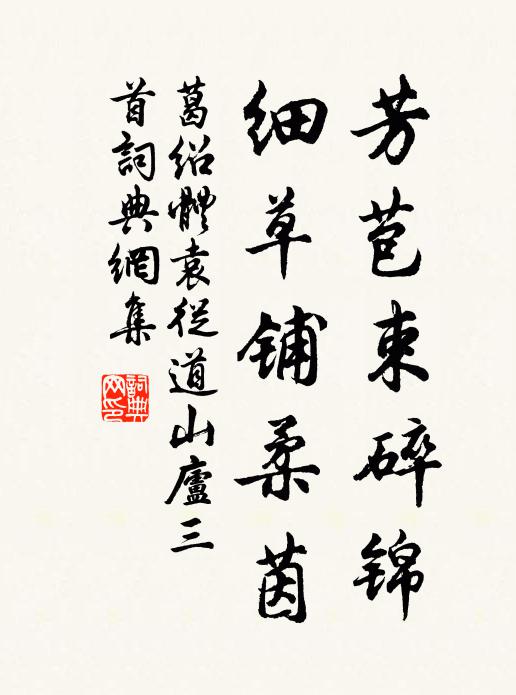 芳苞束碎锦
细草铺柔茵
葛绍體袁從道山廬三
首詞典網集
詞典
网印